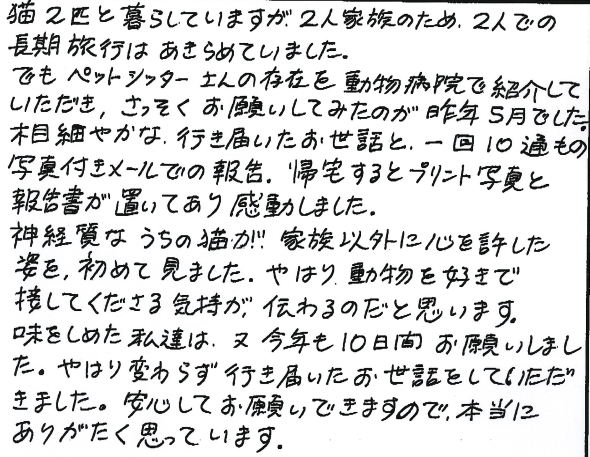 猫2匹と暮らしていますが、2人家族のため、2人での
長期旅行はあきらめていました。
でもペットシッターさんの存在を動物病院で紹介して
いただき、さっそくお願いしてみたのが昨年5月でした。
木目細やかな、行き届いたお世話と、一回10通もの
写真付きメールでの報告。帰宅するとプリント写真と
報告書が置いてあり感動しました。
神経質なうちの猫が!!家族以外に心を許した
姿を、初めて見ました。やはり動物を好きで
接してくださる気持が、伝わるのだと思います。
味をしめた私達は、又今年も10日間お願いしまし
た。やはり変わらず行き届いたお世話をしていただ
きました。安心してお願いできますので、本当に
ありがたく思っています。